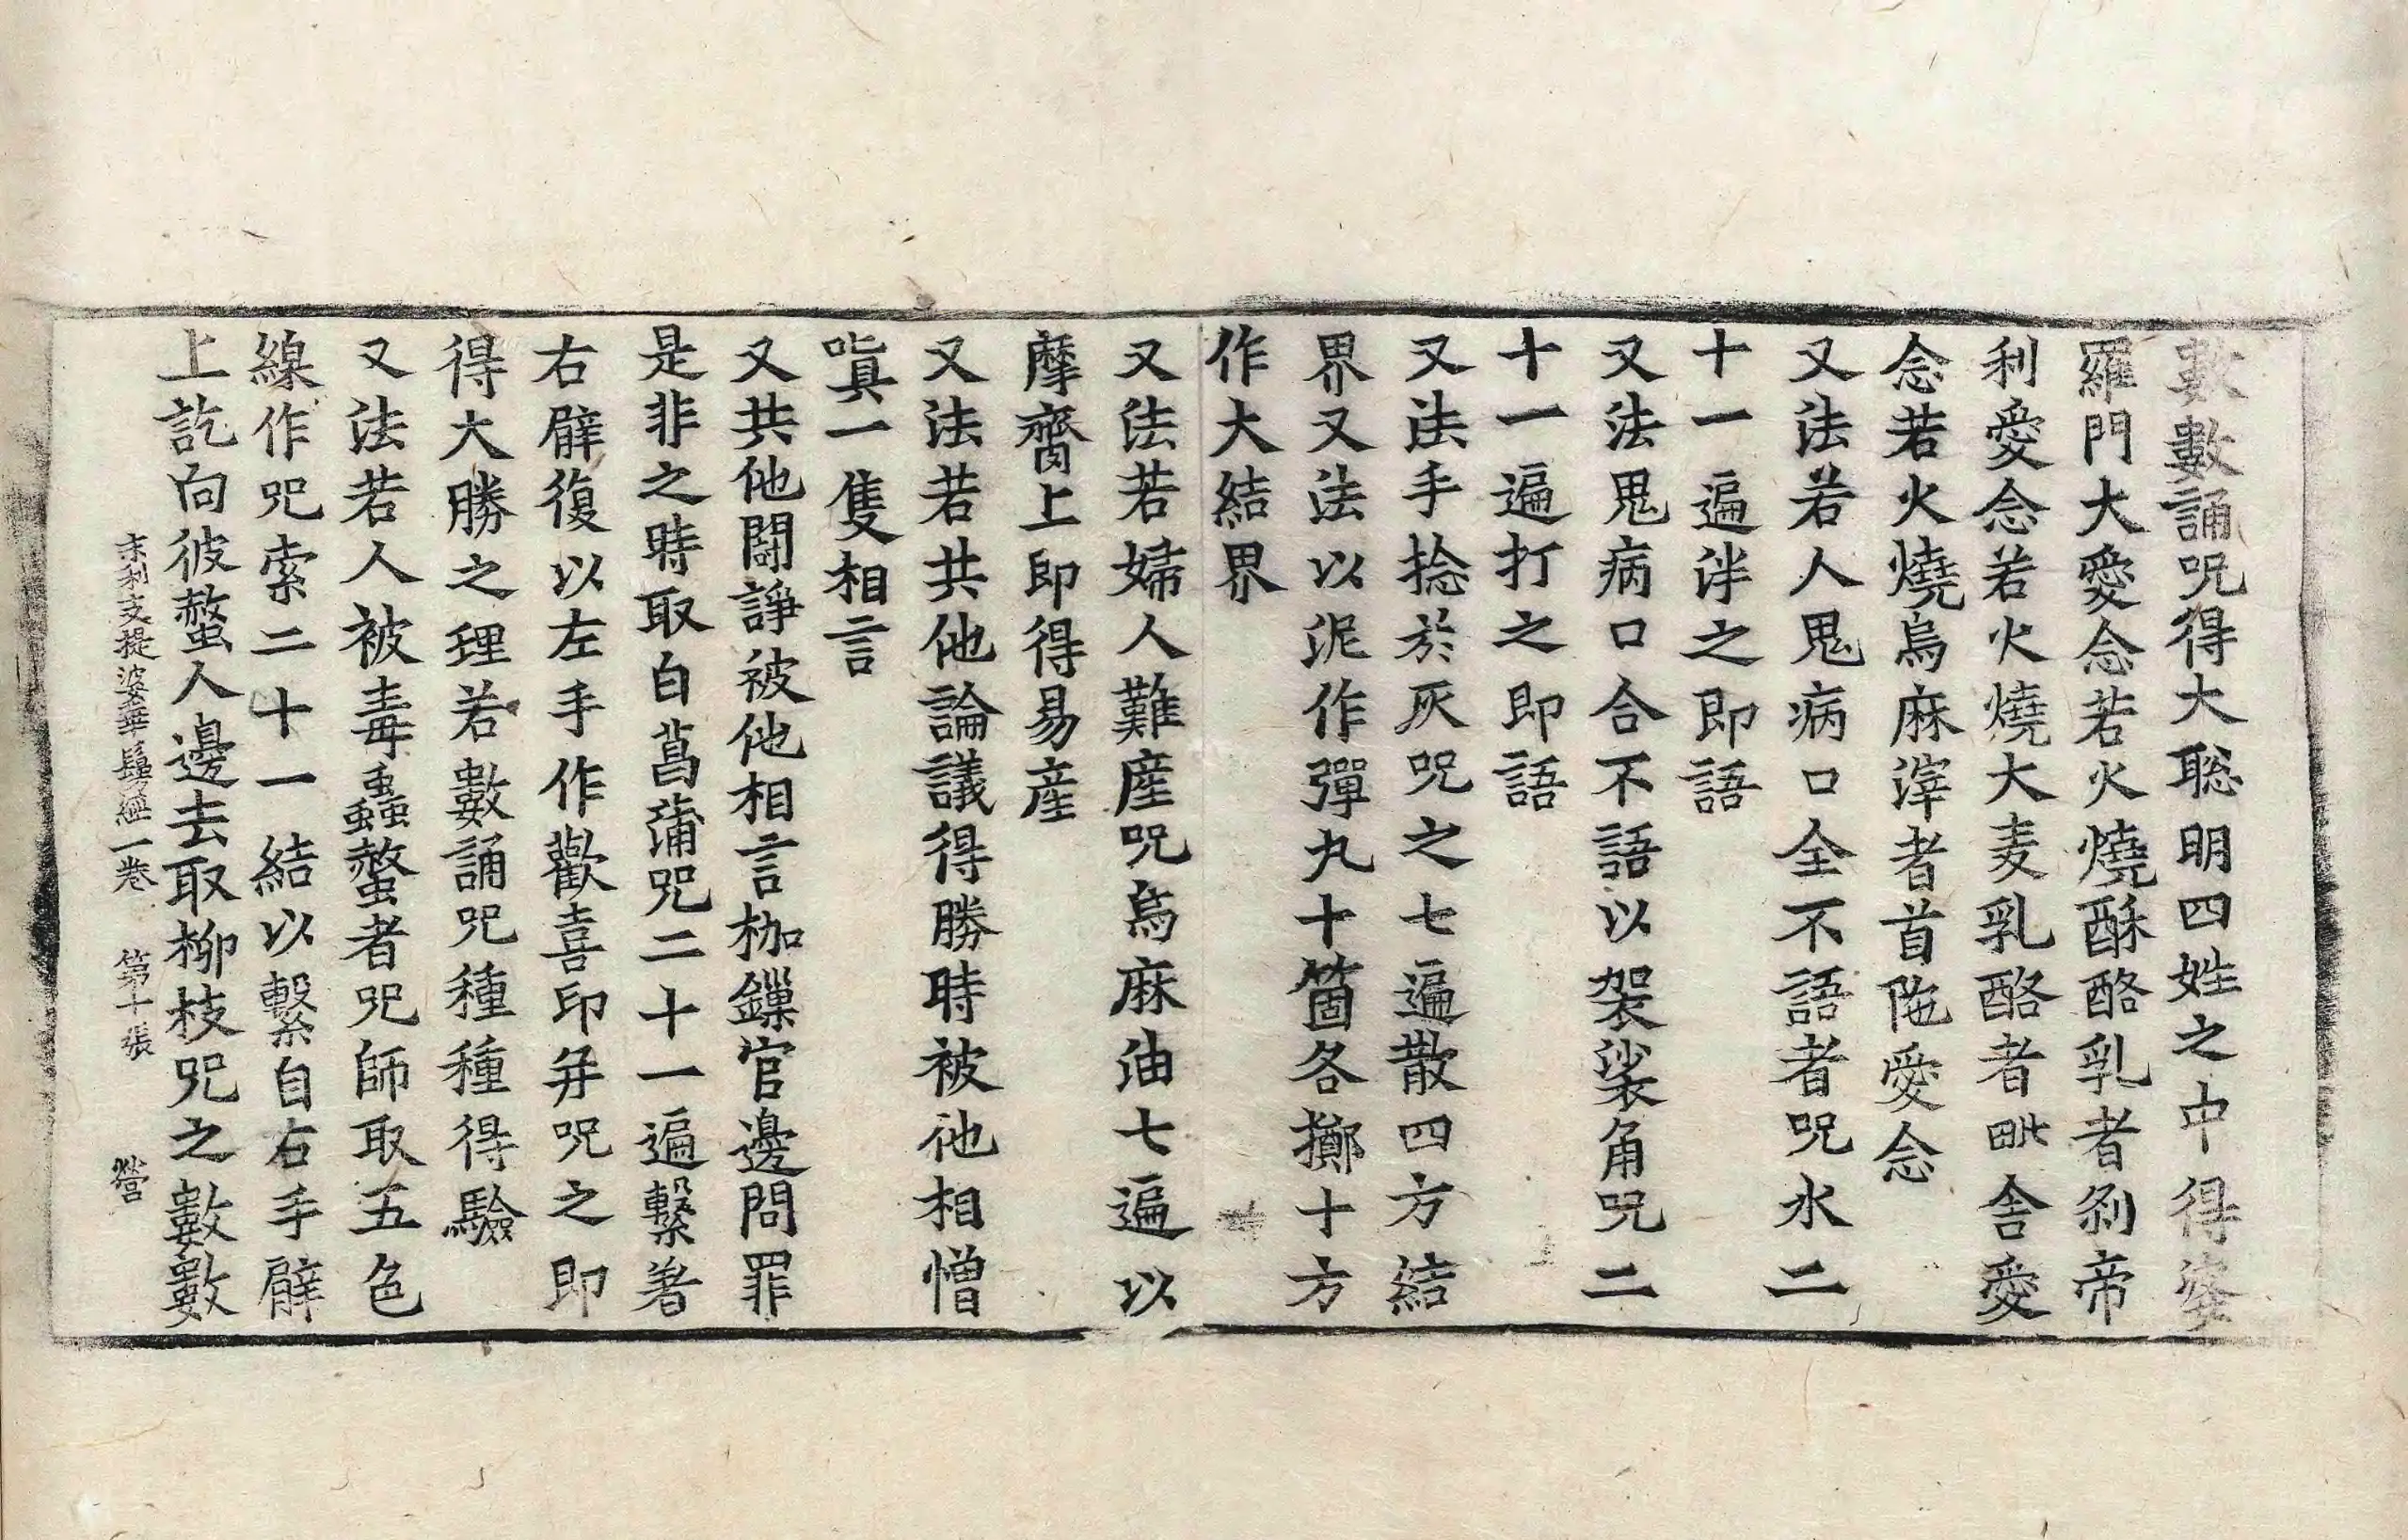 數數誦呪得大聡明四姓之中得婆
羅門大愛念若火燒酥酪乳者刹帝
利愛念若火燒大麦乳酪者毗舎愛
念若火燒烏麻滓者首陁愛念
又法若人鬼病口全不語者呪水二
十一遍泮之即語
又法鬼病口合不語以袈裟角呪二
十一遍打之即語
又法手捻於灰呪之七遍散四方結
界又法以泥作彈丸十箇各擲十方
作大結界
又法若婦人難産呪烏麻油七遍以
摩齎上即得易産
又法若共他論議得勝時被他相憎
嗔一隻相言
又共他鬪諍被他相言枷鏁官邊問罪
是非之時取白菖蒲呪二十一遍繫著
右臂復以左手作歡喜印并呪之即
得大勝之理若數誦呪種種得驗
又法若人被毒蟲螫者呪師取五色
線作呪索二十一結以繫自右手臂
上訖向彼螫人邊去取柳枝呪之數數
末利支提婆華鬘經一卷 第十張 營